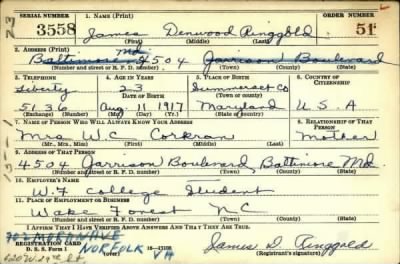 SERIAL NUMBER 1. NAME (Print) ORDER NUMBER
3558 James Denwood Ringgold 51
(First) (Middle) (Last)
2. ADDRESS (Print) Md
Baltimore 4504 Garrison Boulevard
(Number and street or R. F. D. number) (Town) (County) (State)
3. TELEPHONE 4. AGE IN YEARS 5. PLACE OF BIRTH 6. COUNTRY OF CITIZENSHIP
Liberty 23 Summerset Co
DATE OF BIRTH
5136 Aug. 11 1917 Maryland U.S.A
(Exchange) (Number) (Mo.) (Day) (Yr.) (State or country)
7. NAME OF PERSON WHO WILL ALWAYS KNOW YOUR ADDRESS 8. RELATIONSHIP OF THAT PERSON
Mrs W C Corkran Mother
(Mr., Mrs., Miss) (First) (Middle) (Last)
9. ADDRESS OF THAT PERSON
4504 Garrison Boulevard, Baltimore Md.
(Number and street or R. F. D. number) (Town) (County) (State)
10. EMPLOYER'S NAME
W.F College Student
11. PLACE OF EMPLOYMENT OR BUSINESS
Wake Forest N C
(Number and street or R. F. D. number) (Town) (County) (State)
I AFFIRM THAT I HAVE VERIFIED ABOVE ANSWERS AND THAT THEY ARE TRUE.
REGISTRATION CARD
D. S. S. Form 1 (over) James D. Ringgold
NORFOLK VA (Registrant's signature)